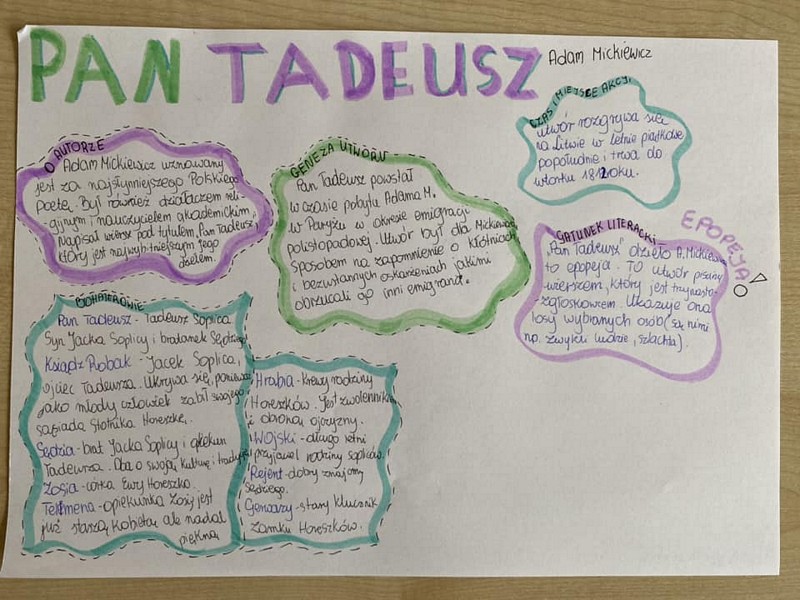 PAN TADEUSZ
Adam Mickiewicz
O AUTORZE
Adam Mickiewicz uznawany
jest za najsłynniejszego Polskiego
poetę. Był również działaczem reli-
-gijnym i nauczycielem akademickim.
Napisał wiersz pod tytułem „Pan Tadeusz",
który jest najwybitniejszym jego
dziełem.
GENEZA UTWORU
Pan Tadeusz powstał
w czasie pobytu Adama M.
w Paryżu w okresie emigracji
polistopadowej. Utwór był dla Mickiewicza
sposobem na zapomnienie o kłótniach
i bezustannych oskarżeniach jakimi
obrzucali go inni emigranci.
CZAS I MIEJSCE AKCJI
utwór rozgrywa się
na Litwie w letnie piątkowe
popołudnie i trwa do
wtorku 1812roku.
GATUNEK LITERACKI
EPOPEJA!
„Pan Tadeusz" dzieło A. Mickiewicza
to epopeja. To utwór pisany
wierszem, który jest trzynasto-
zgłoskowcem. Ukazuje ona
losy wybranych osób (są nimi
np. zwykli ludzie, szlachta).
BOHATEROWIE
Pan Tadeusz - Tadeusz Soplica.
Syn Jacka Soplicy i bratanek Sędziego
Ksiądz Robak - Jacek Soplica,
ojciec Tadeusza. Ukrywa się, ponieważ
jako młody człowiek zabił swojego
sąsiada Stolnika Horeszkę.
Sędzia - brat Jacka Soplicy i opiekun
Tadeusza. Dba o swoją kulturę i tradycję
Zosia - córka Ewy Horeszko.
Telimena - opiekunka Zosi, jest
już starszą kobietą ale nadal
piękną
Hrabia - krewny rodziny
Horeszków. Jest zwolennikiem
i obrońcą ojczyzny.
Wojski - długo letni
przyjaciel rodziny sopliców.
Rejent - dobry znajomy
Sędziego.
Gerwazy - stary klucznik
zamku Horeszków.